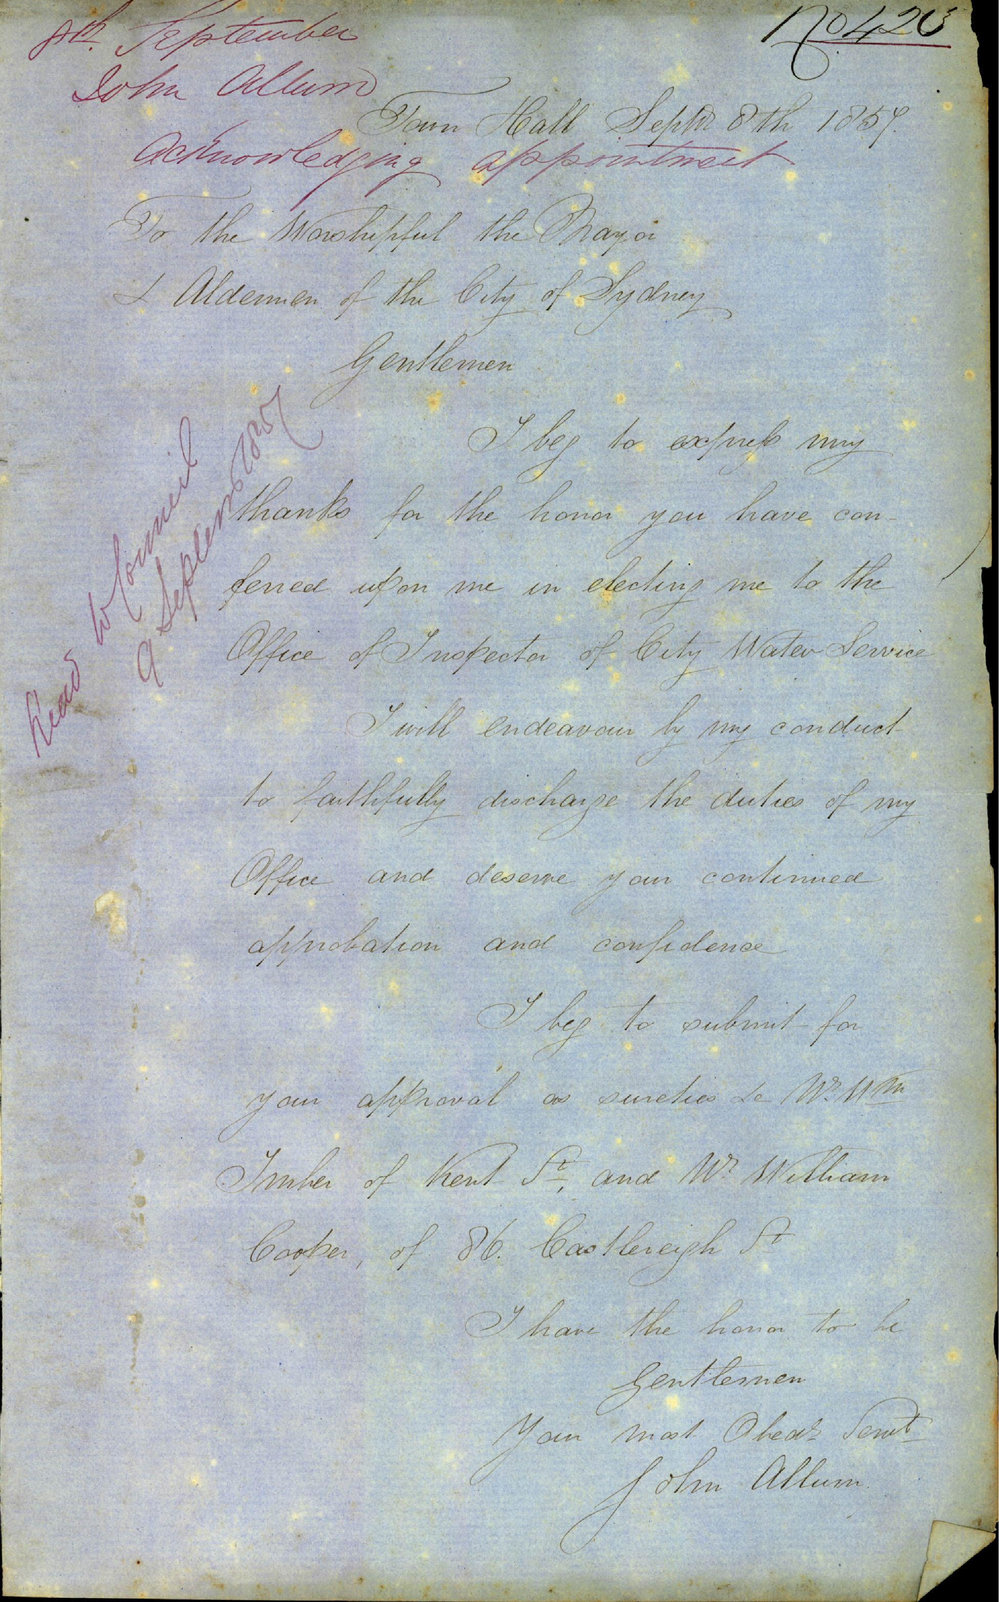 8th September
No 426
John Allum
Town Hall Septr 8th 1857.
Acknowledging appointment
To the Worshipful the Mayor
& Aldermen of the City of Sydney
Gentlemen
I beg to express my
thanks for the honor you have con-
ferred upon me in electing me to the
Office of Inspector of City Water Service
I will endeavour by my conduct
to faithfully discharge the duties of my
Office and deserve your continued
approbation and confidence
I beg to submit for
your approval as sureties &c Mr. Wm
Imber of Kent St, and Mr William
Cooper, of 86. Castlereigh St
I have the honor to be
Gentlemen
Your most Obedt Servt
John Allum
Read to Council
9 September 1857